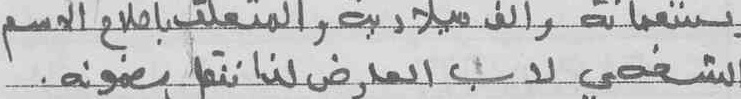 وتسعمائة والف ميلادية والمتعلق باصلاح الاسم
الشخصي لاب العارض لنا نتقل بضمونه.